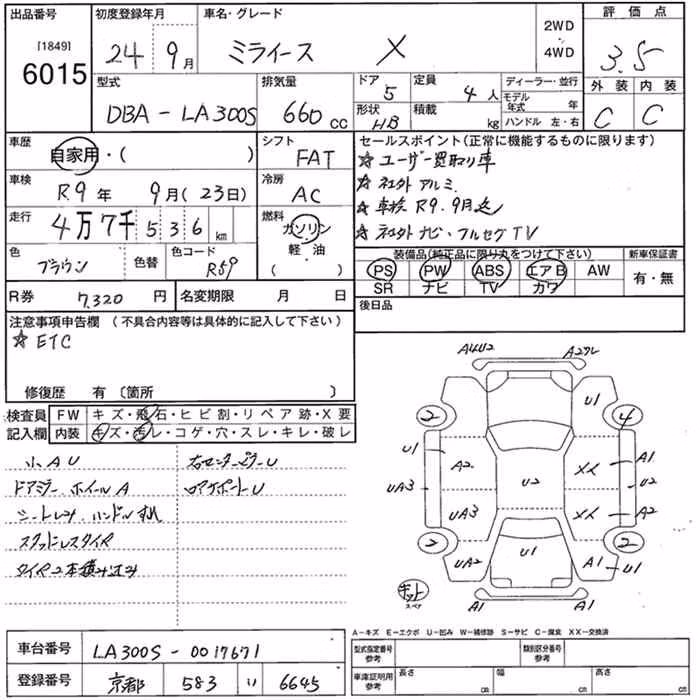 出品番号 初度登録年月 車名・グレード 2WD・4WD 評価点
[1849]
6015 24年 9月 ミライース X 3.5
型式 排気量 ドア 5 定員 4人 ディーラー・並行 外装 内装
DBA-LA300S 660cc 形状 HB 積載 kg モデル年式 年 C C
ハンドル 左・右
車歴 自家用・( ) シフト FAT
車検 R.9年 9月(23日) 冷房 AC
走行 4万7千536km 燃料 ガソリン 軽・油 ( )
色 ブラウン 色替 色コード R59
R券 7,320円 名変期限 月 日
セールスポイント(正常に機能するものに限ります)
☆ユーザー買取り車
☆社外アルミ
☆車検R9.9月迄
☆社外ナビ・フルセグTV
装備品(純正品に限り丸をつけて下さい) 新車保証書
PS PW ABS エアB AW 有・無
SR ナビ TV カワ
後日品
注意事項申告欄(不具合内容等は具体的に記入して下さい)
☆ETC
修復歴 有〔箇所 〕
検査員 FW キズ・飛石・ヒビ割・リペア跡・X要
記入欄 内装 キズ・汚レ・コゲ・穴・スレ・キレ・破レ
小AU 右センターピラーU
ドアミラー.ホイールA ロアサポートU
シートしみ.ハンドルすれ
スタッドレスタイヤ
タイヤ2本積み込み
A4U2 A2ワレ
2 U1 4
U1 A2 XX A1
UA3 U2 U2
UA3 XX A2
2 UA2 U1 A1 2
U1
キット
スペア A1 A1
A-キズ E-エクボ U-凹み W-補修跡 S-サビ C-腐食 XX-交換済
車台番号 LA300S-0017671
登録番号 京都 583 い 6645
型式指定番号 参考 類別区分番号 参考
車庫証明用 参考 長さ cm 幅 cm 高さ cm